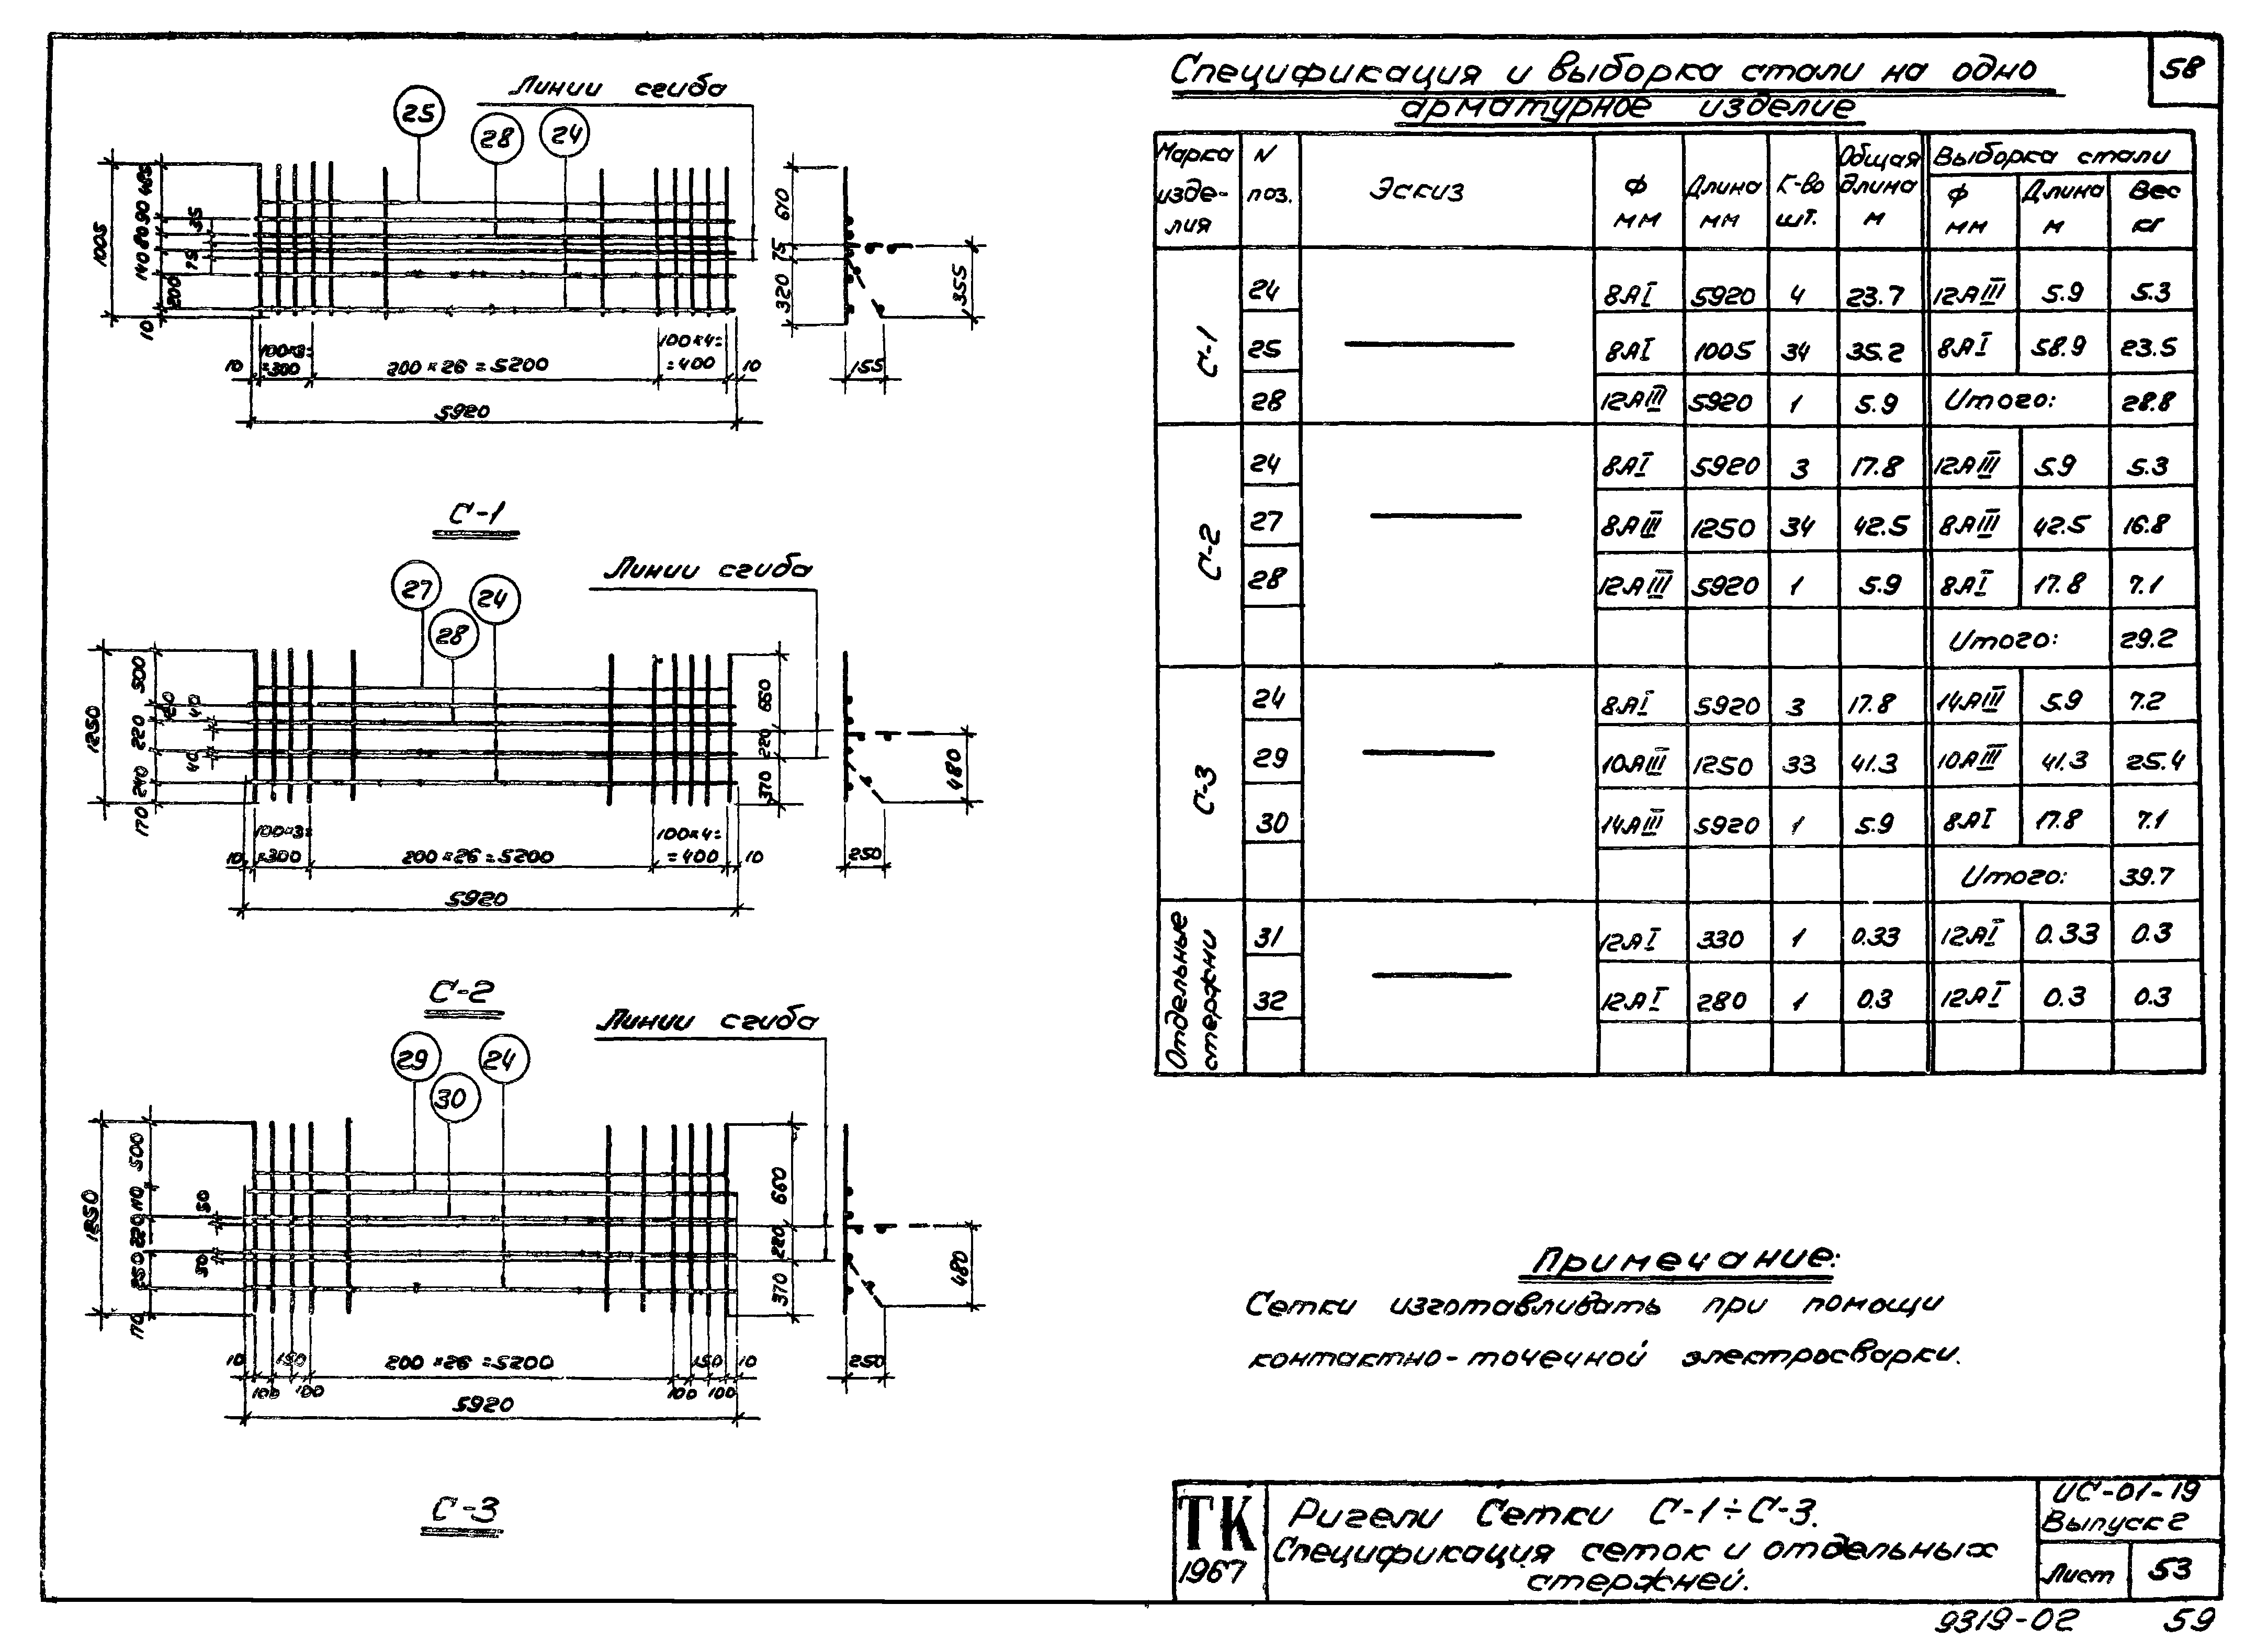 58
Спецификация и выборка стали на одно
арматурное изделие
Линии сгиба
25 28 24
1005
485 90 80 140 200 10
35
75
610 75 320
355
155
10 100×3= =300 200×26=5200 100×4= =400 10
5920
С-1
Линии сгиба
27 28 24
1250
500 120 220 240 170
40
40
660 220 370
480
250
10 100×3= =300 200×26=5200 100×4= =400 10
5920
С-2
Линии сгиба
29 30 24
1250
500 110 220 250 170
50
50
660 220 370
480
250
10 150 200×26=5200 150 10
100 100 100 100
5920
С-3
Марка изделия N поз. Эскиз Ф мм Длина мм К-во шт. Общая длина м Выборка стали
Ф мм Длина м Вес кг
С-1
24 8АI 5920 4 23.7 12АIII 5.9 5.3
25 8АI 1005 34 35.2 8АI 58.9 23.5
28 12АIII 5920 1 5.9 Итого: 28.8
С-2
24 8АI 5920 3 17.8 12АIII 5.9 5.3
27 8АIII 1250 34 42.5 8АIII 42.5 16.8
28 12АIII 5920 1 5.9 8АI 17.8 7.1
Итого: 29.2
С-3
24 8АI 5920 3 17.8 14АIII 5.9 7.2
29 10АIII 1250 33 41.3 10АIII 41.3 25.4
30 14АIII 5920 1 5.9 8АI 17.8 7.1
Итого: 39.7
Отдельные стержни
31 12АI 330 1 0.33 12АI 0.33 0.3
32 12АI 280 1 0.3 12АI 0.3 0.3
Примечание:
Сетки изготавливать при помощи
контактно-точечной электросварки.
ТК
1967
Ригели Сетки С-1÷С-3.
Спецификация сеток и отдельных
стержней.
ИС-01-19
Выпуск 2
Лист 53
9319-02 59